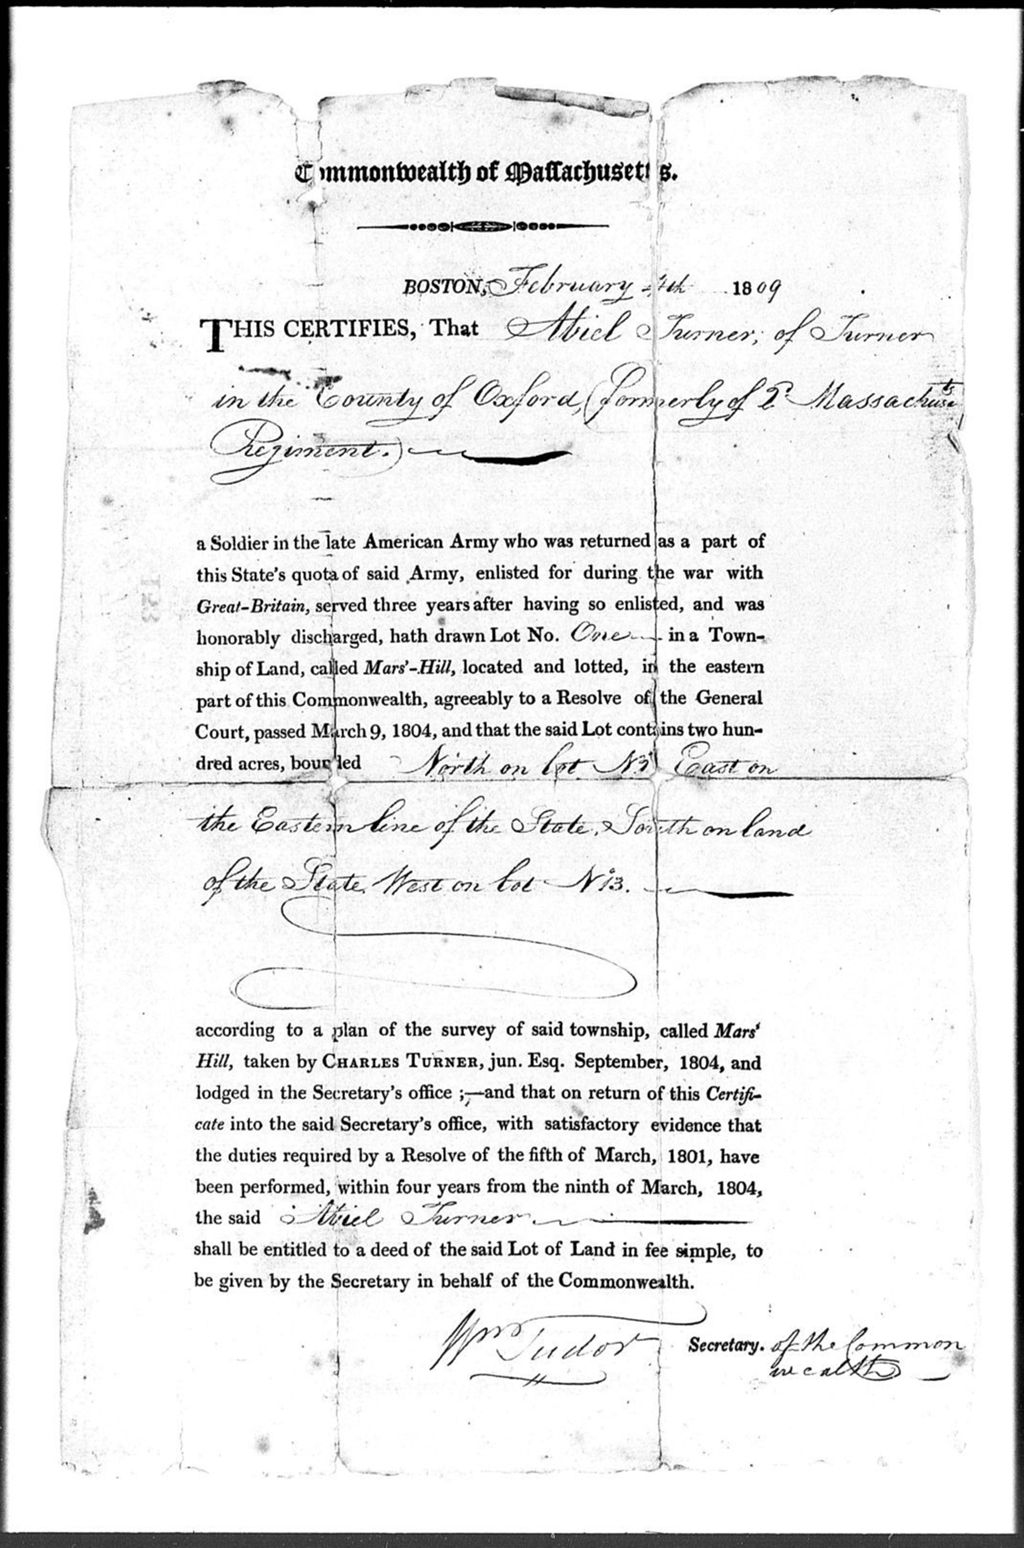 Commonwealth of Massachusetts.
BOSTON, February 4th 1809
THIS CERTIFIES, That Abiel Turner, of Turner
in the County of Oxford, (formerly of 2d Massachusts
Regiment.)
a Soldier in the late American Army who was returned as a part of
this State's quota of said Army, enlisted for during the war with
Great-Britain, served three years after having so enlisted, and was
honorably discharged, hath drawn Lot No. One in a Town-
ship of Land, called Mars'-Hill, located and lotted, in the eastern
part of this Commonwealth, agreeably to a Resolve of the General
Court, passed March 9, 1804, and that the said Lot contains two hun-
dred acres, bounded North on lot No East on
the Eastern line of the State, South on land
of the State, West on lot No 3.
according to a plan of the survey of said township, called Mars'
Hill, taken by CHARLES TURNER, jun. Esq. September, 1804, and
lodged in the Secretary's office ;—and that on return of this Certifi-
cate into the said Secretary's office, with satisfactory evidence that
the duties required by a Resolve of the fifth of March, 1801, have
been performed, within four years from the ninth of March, 1804,
the said Abiel Turner
shall be entitled to a deed of the said Lot of Land in fee simple, to
be given by the Secretary in behalf of the Commonwealth.
Wm Tudor Secretary. of the Common
wealth